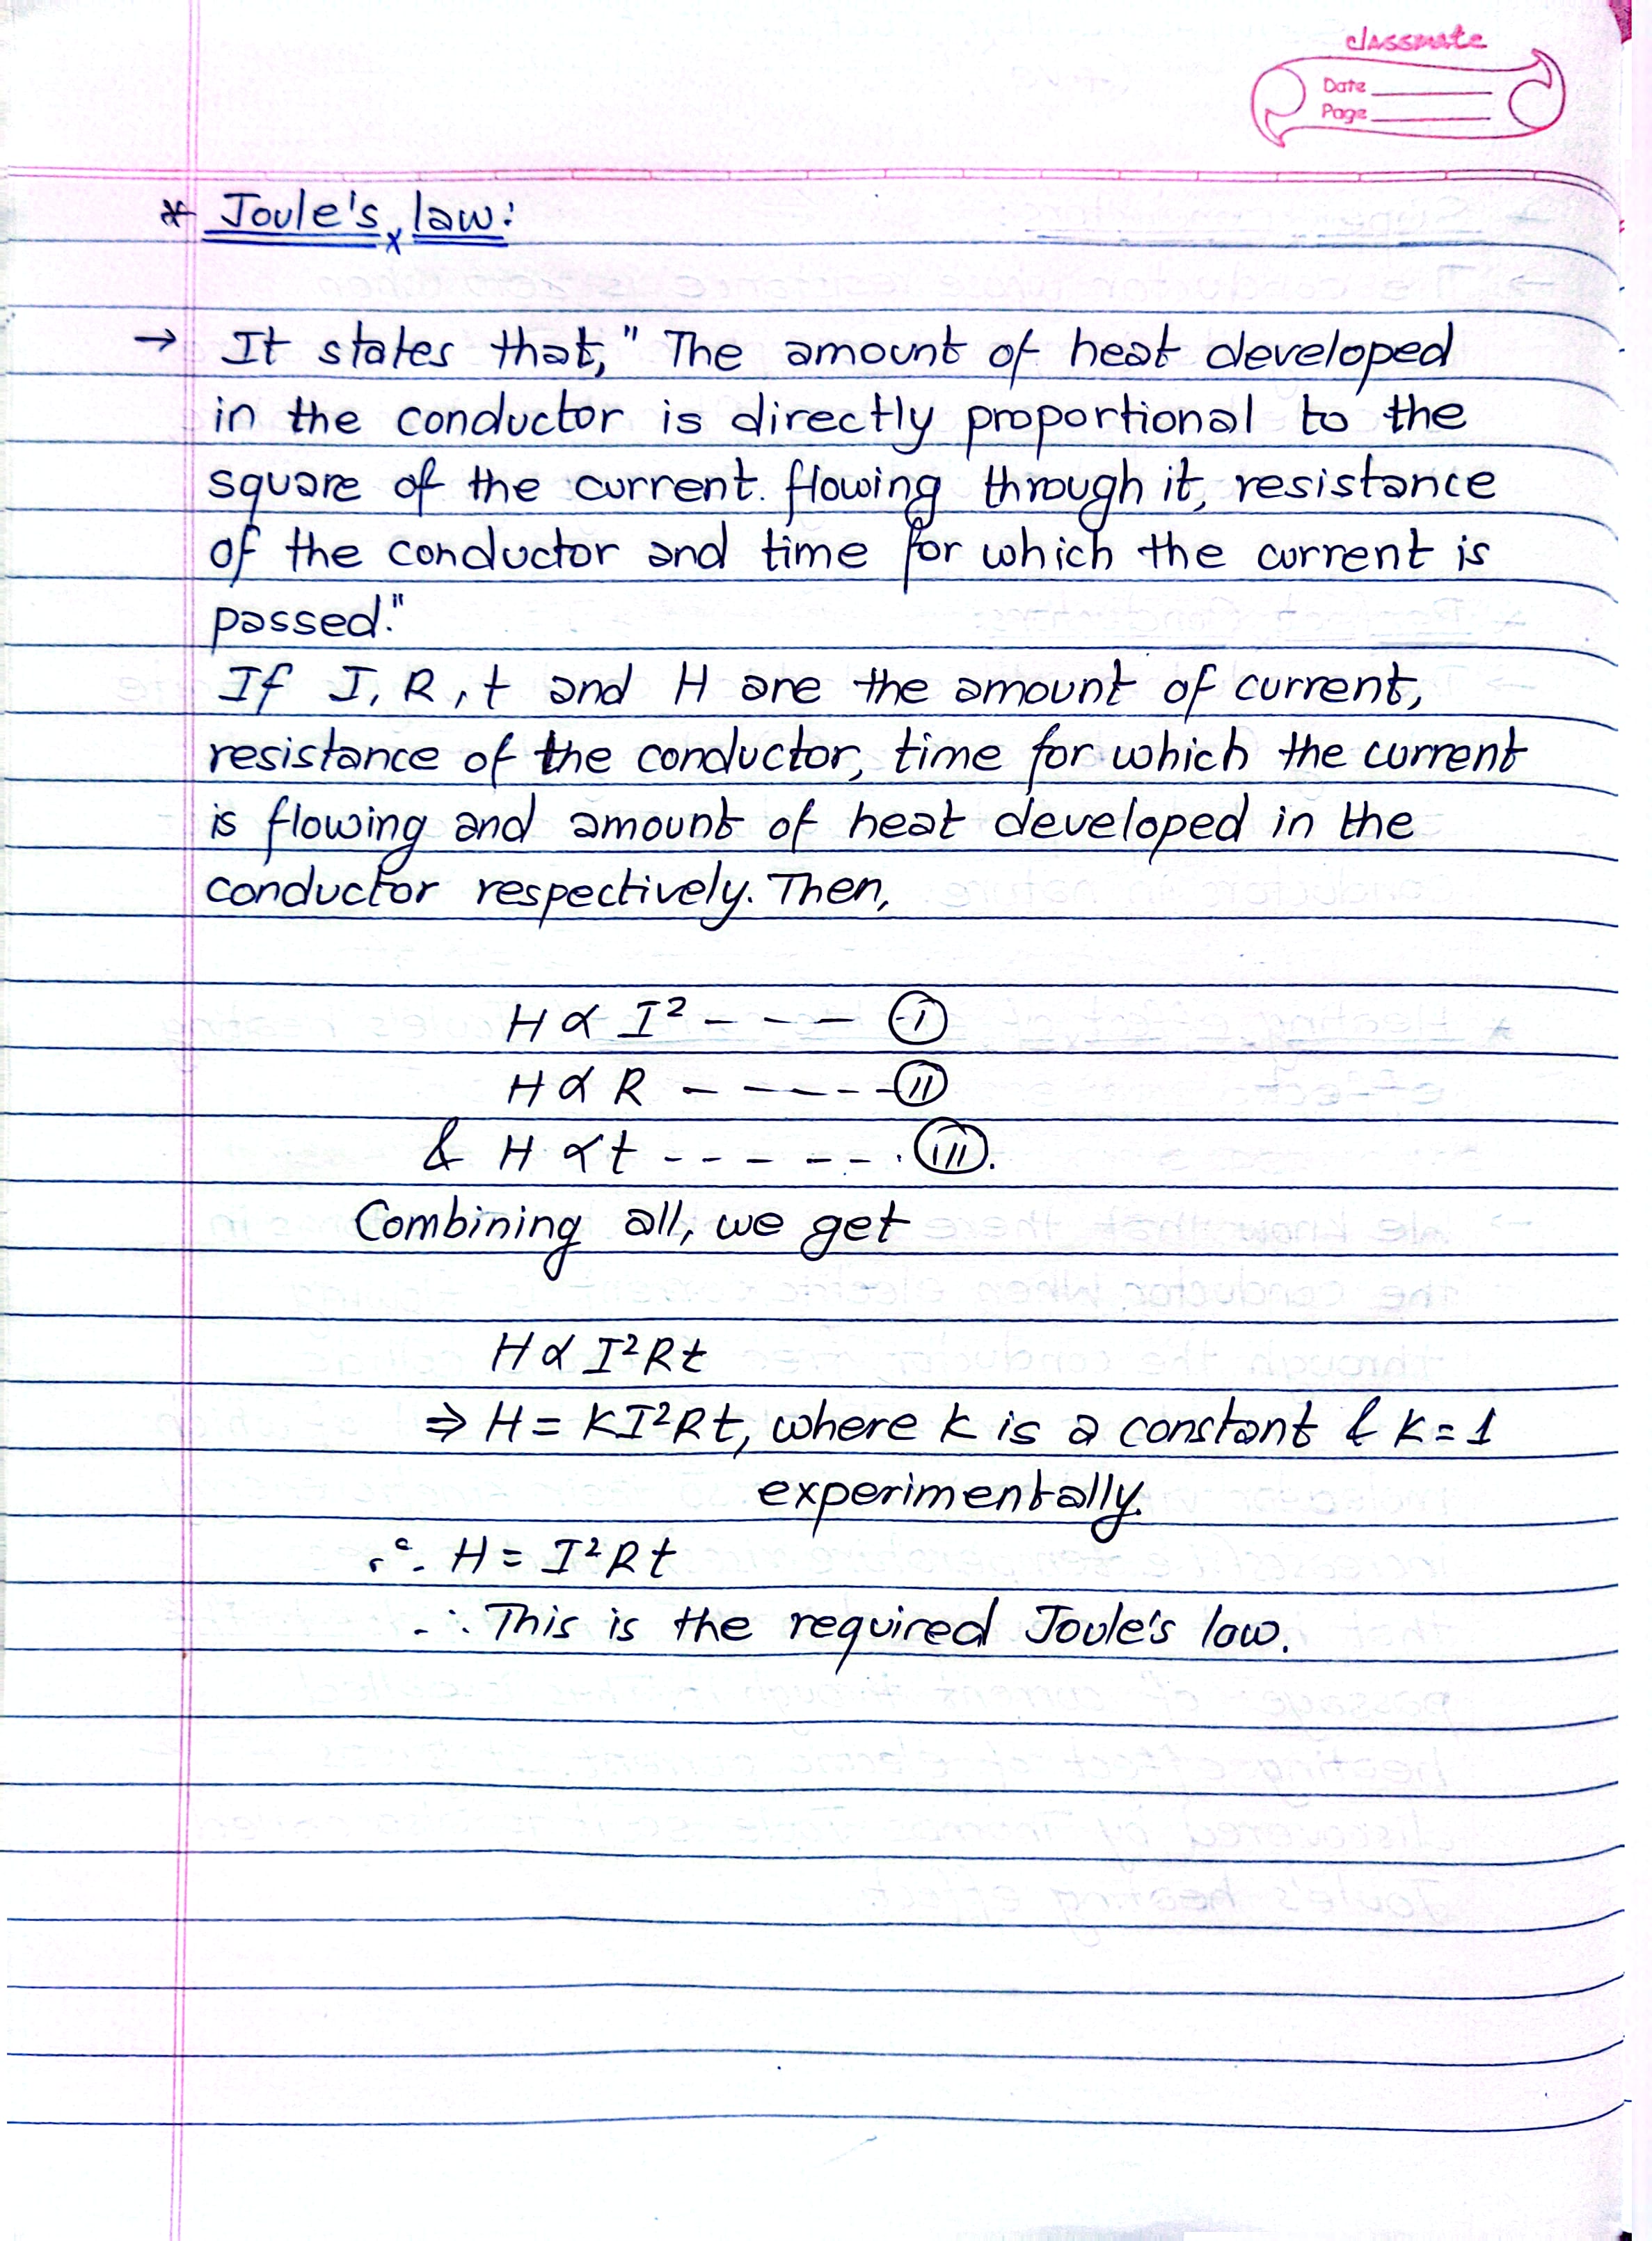 classmate
Date
Page
* Joule's law:
→ It states that, " The amount of heat developed
in the conductor is directly proportional to the
square of the current. flowing through it, resistance
of the conductor and time for which the current is
passed."
If I, R, t and H are the amount of current,
resistance of the conductor, time for which the current
is flowing and amount of heat developed in the
conductor respectively. Then,
H ∝ I² - - - (i)
H ∝ R - - - - - (ii)
& H ∝ t - - - - - - . (iii).
Combining all, we get
H ∝ I²Rt
⇒ H = KI²Rt, where k is a constant & K = 1
experimentally.
∴ H = I²Rt
∴ This is the required Joule's law.